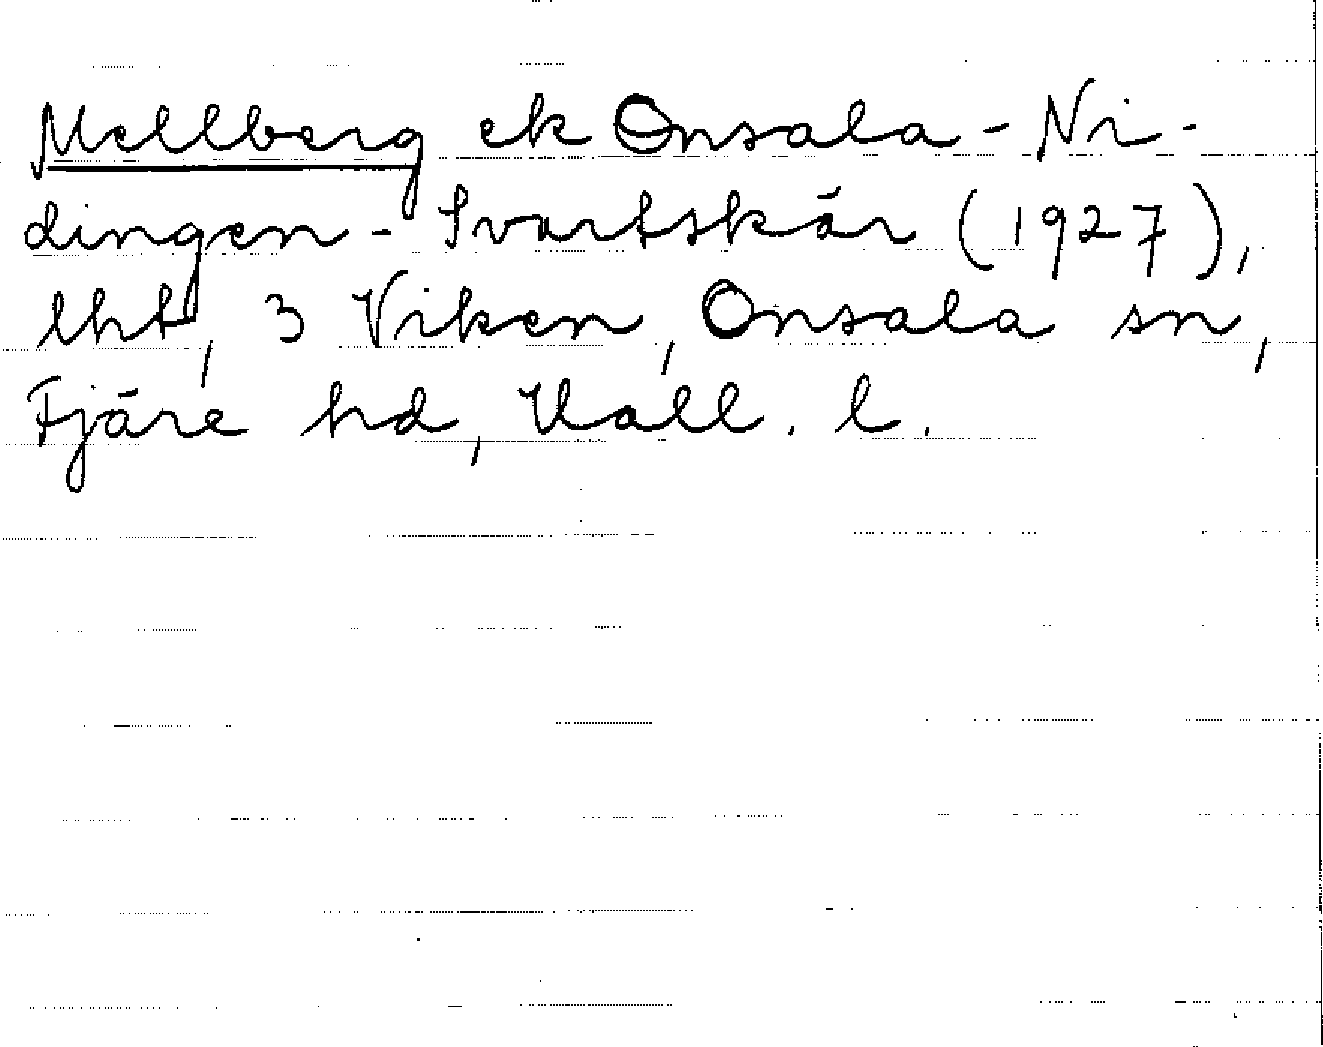 Mellberg ek Onsala - Ni-
dingen - Svartskär (1927),
lht, 3 Viken, Onsala sn,
Fjäre hd, Hall. l.